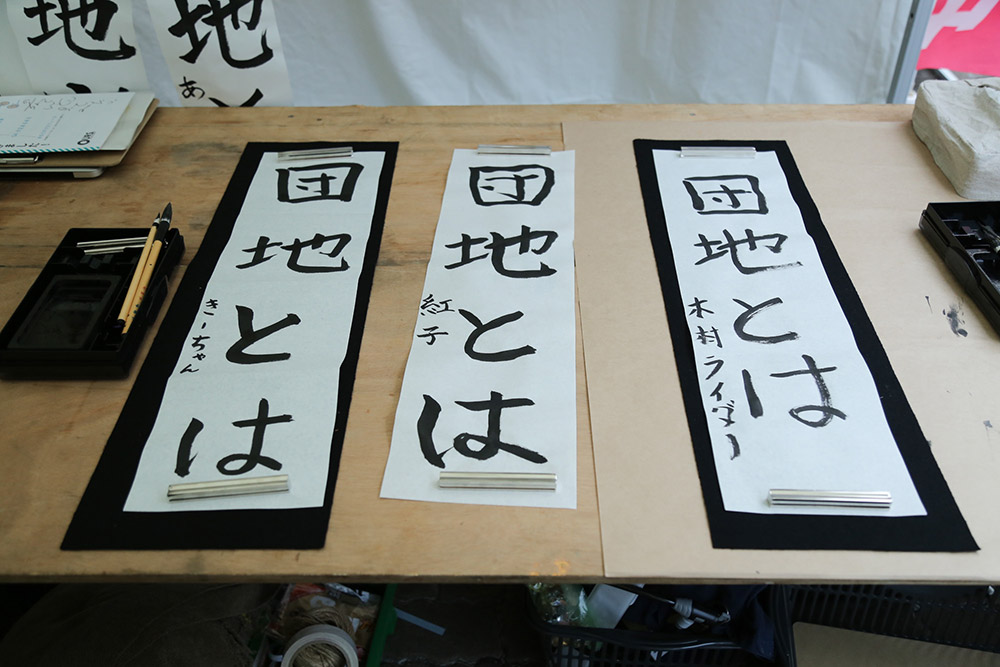 地
地
あ
団地とは
きーちゃん
団地とは
紅子
団地とは
木村ライダー